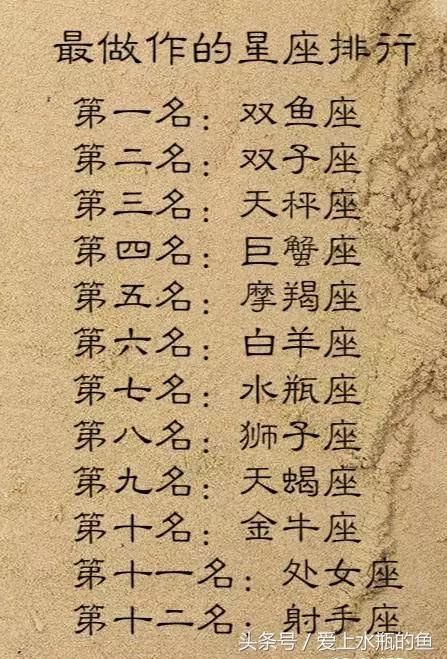 最做作的星座排行
第一名：双鱼座
第二名：双子座
第三名：天秤座
第四名：巨蟹座
第五名：摩羯座
第六名：白羊座
第七名：水瓶座
第八名：狮子座
第九名：天蝎座
第十名：金牛座
第十一名：处女座
第十二名：射手座
头条号 / 爱上水瓶的鱼